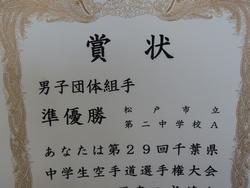 賞状
男子団体組手
準優勝 松戸市立
第二中学校A
あなたは第29回千葉県
中学生空手道選手権大会